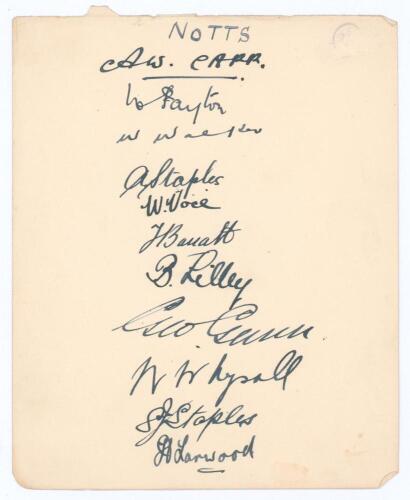 NOTTS
A.W. CARR.
W Payton
W Walker
A Staples
W. Voce
F Barratt
B. Lilley
Geo Gunn.
W Whysall
S J Staples
H Larwood